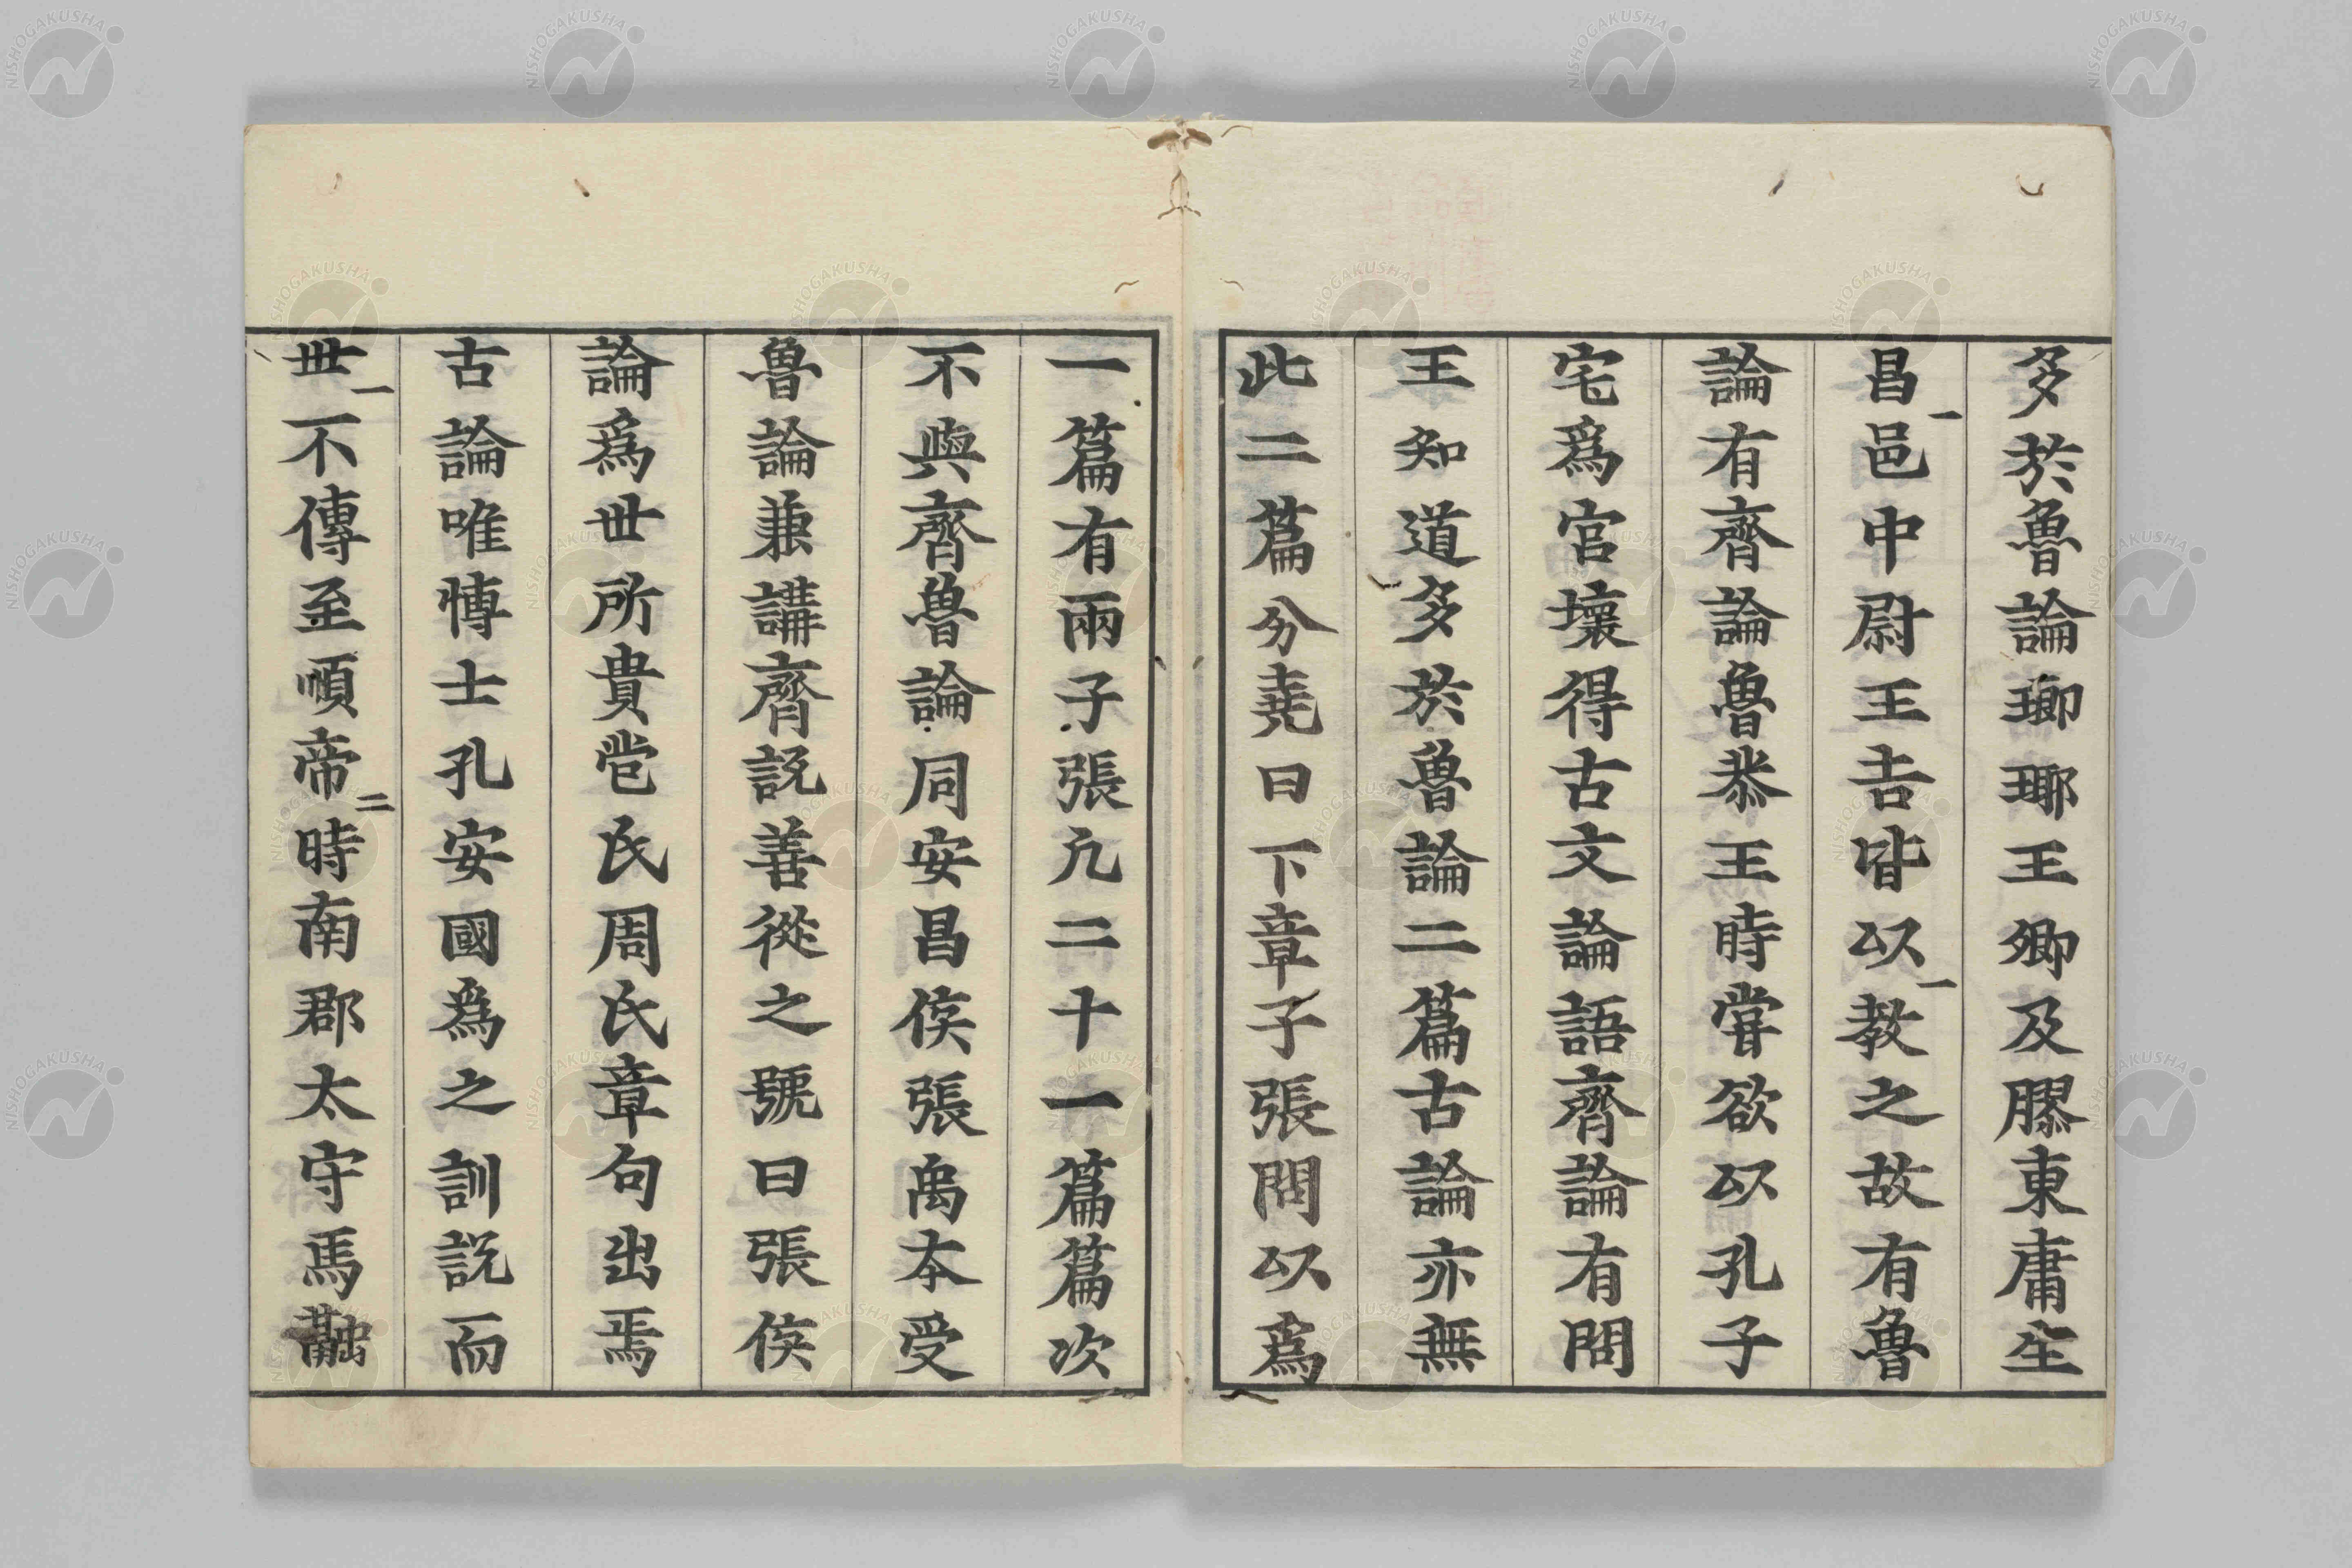 多於魯論瑯琊王卿及膠東庸生
昌邑中尉王吉皆以教之故有魯
論有齊論魯恭王時嘗欲以孔子
宅爲宮壞得古文論語齊論有問
王知道多於魯論二篇古論亦無
此二篇分堯曰下章子張問以爲
一篇有兩子張凢二十一篇篇次
不與齊魯論同安昌侯張禹本受
魯論兼講齊說善從之號曰張侯
論爲世所貴苞氏周氏章句出焉
古論唯博士孔安國爲之訓說而
世不傳至順帝時南郡太守馬融
NISHOGAKUSHA